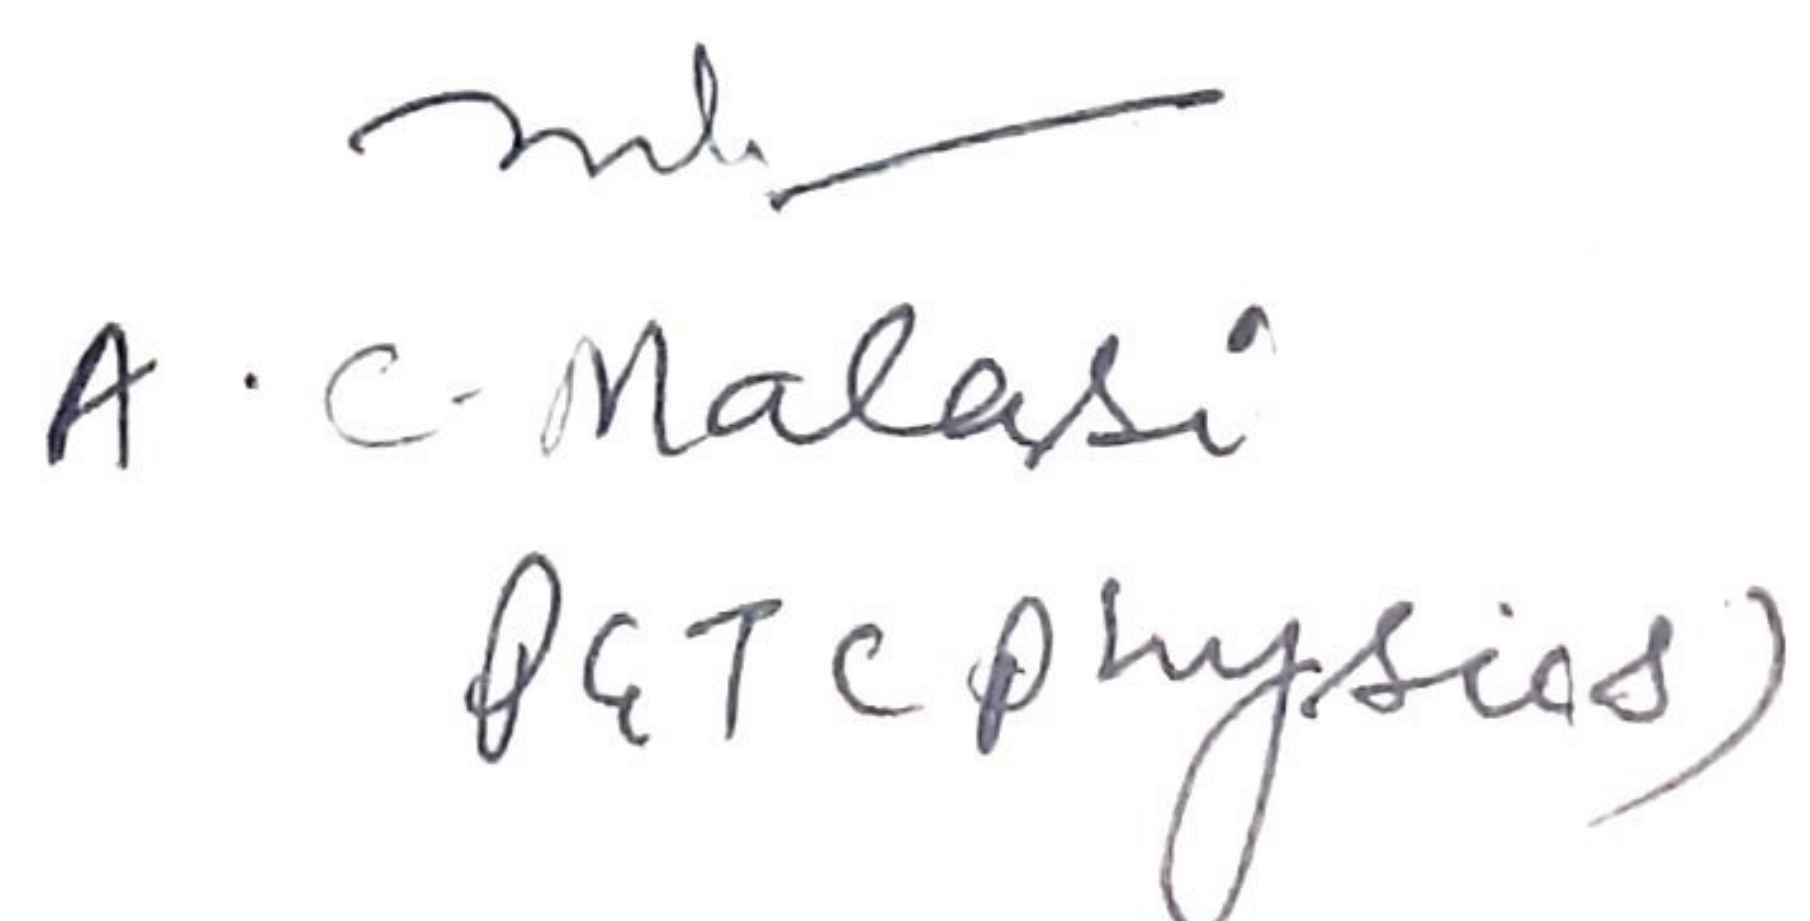 A. C. Malasi
PGT (Physics)